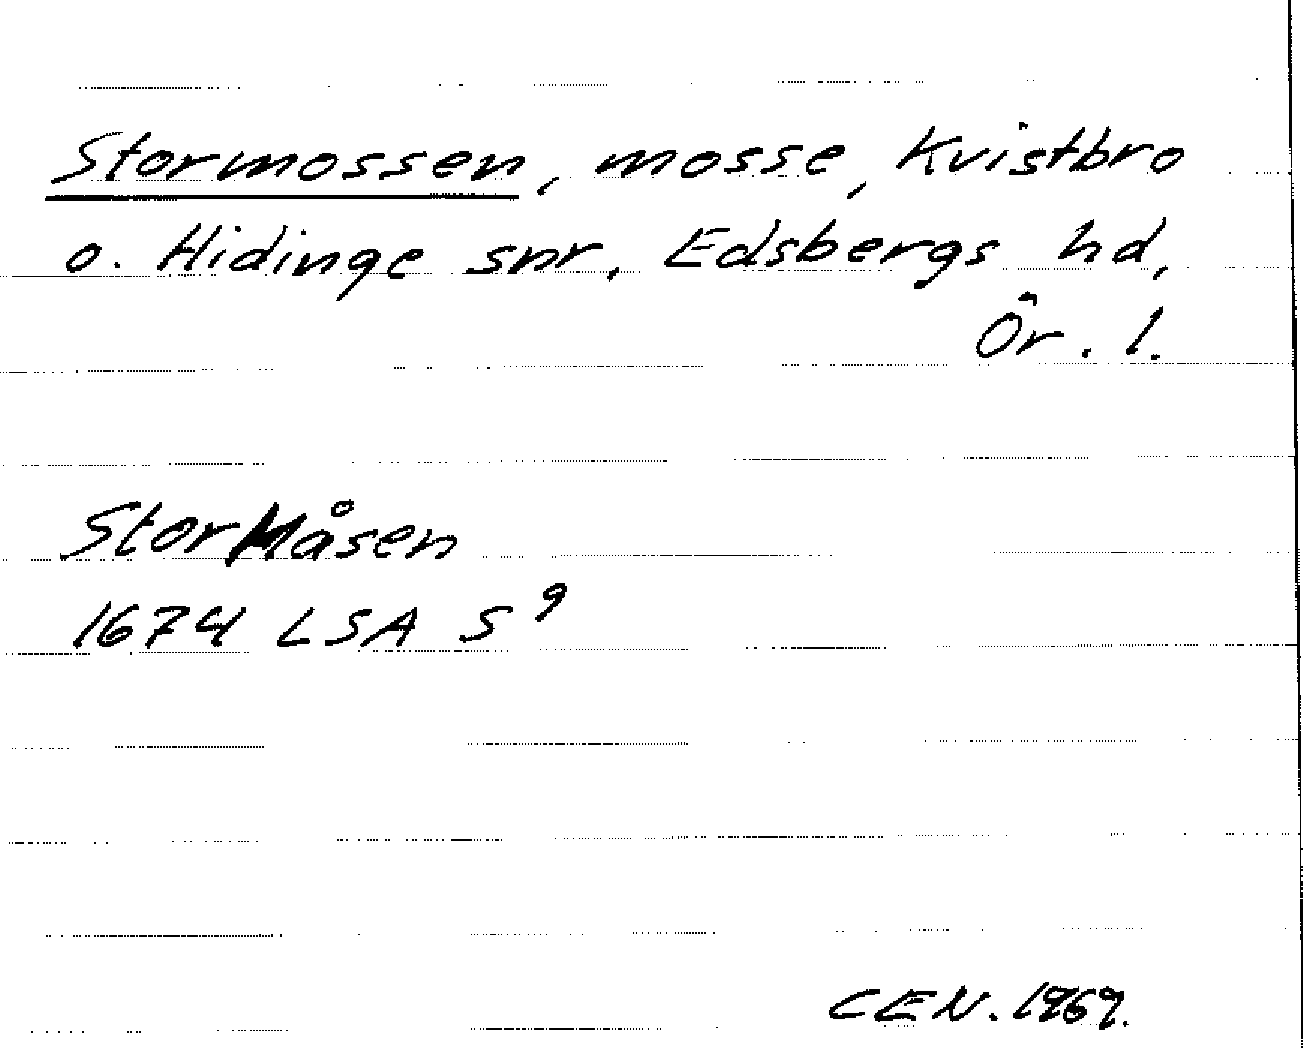 Stormossen, mosse, Kvistbro
o. Hidinge snr, Edsbergs hd,
Ör. l.
StorMåsen
1674 LSA S⁹
CEN. 1969.